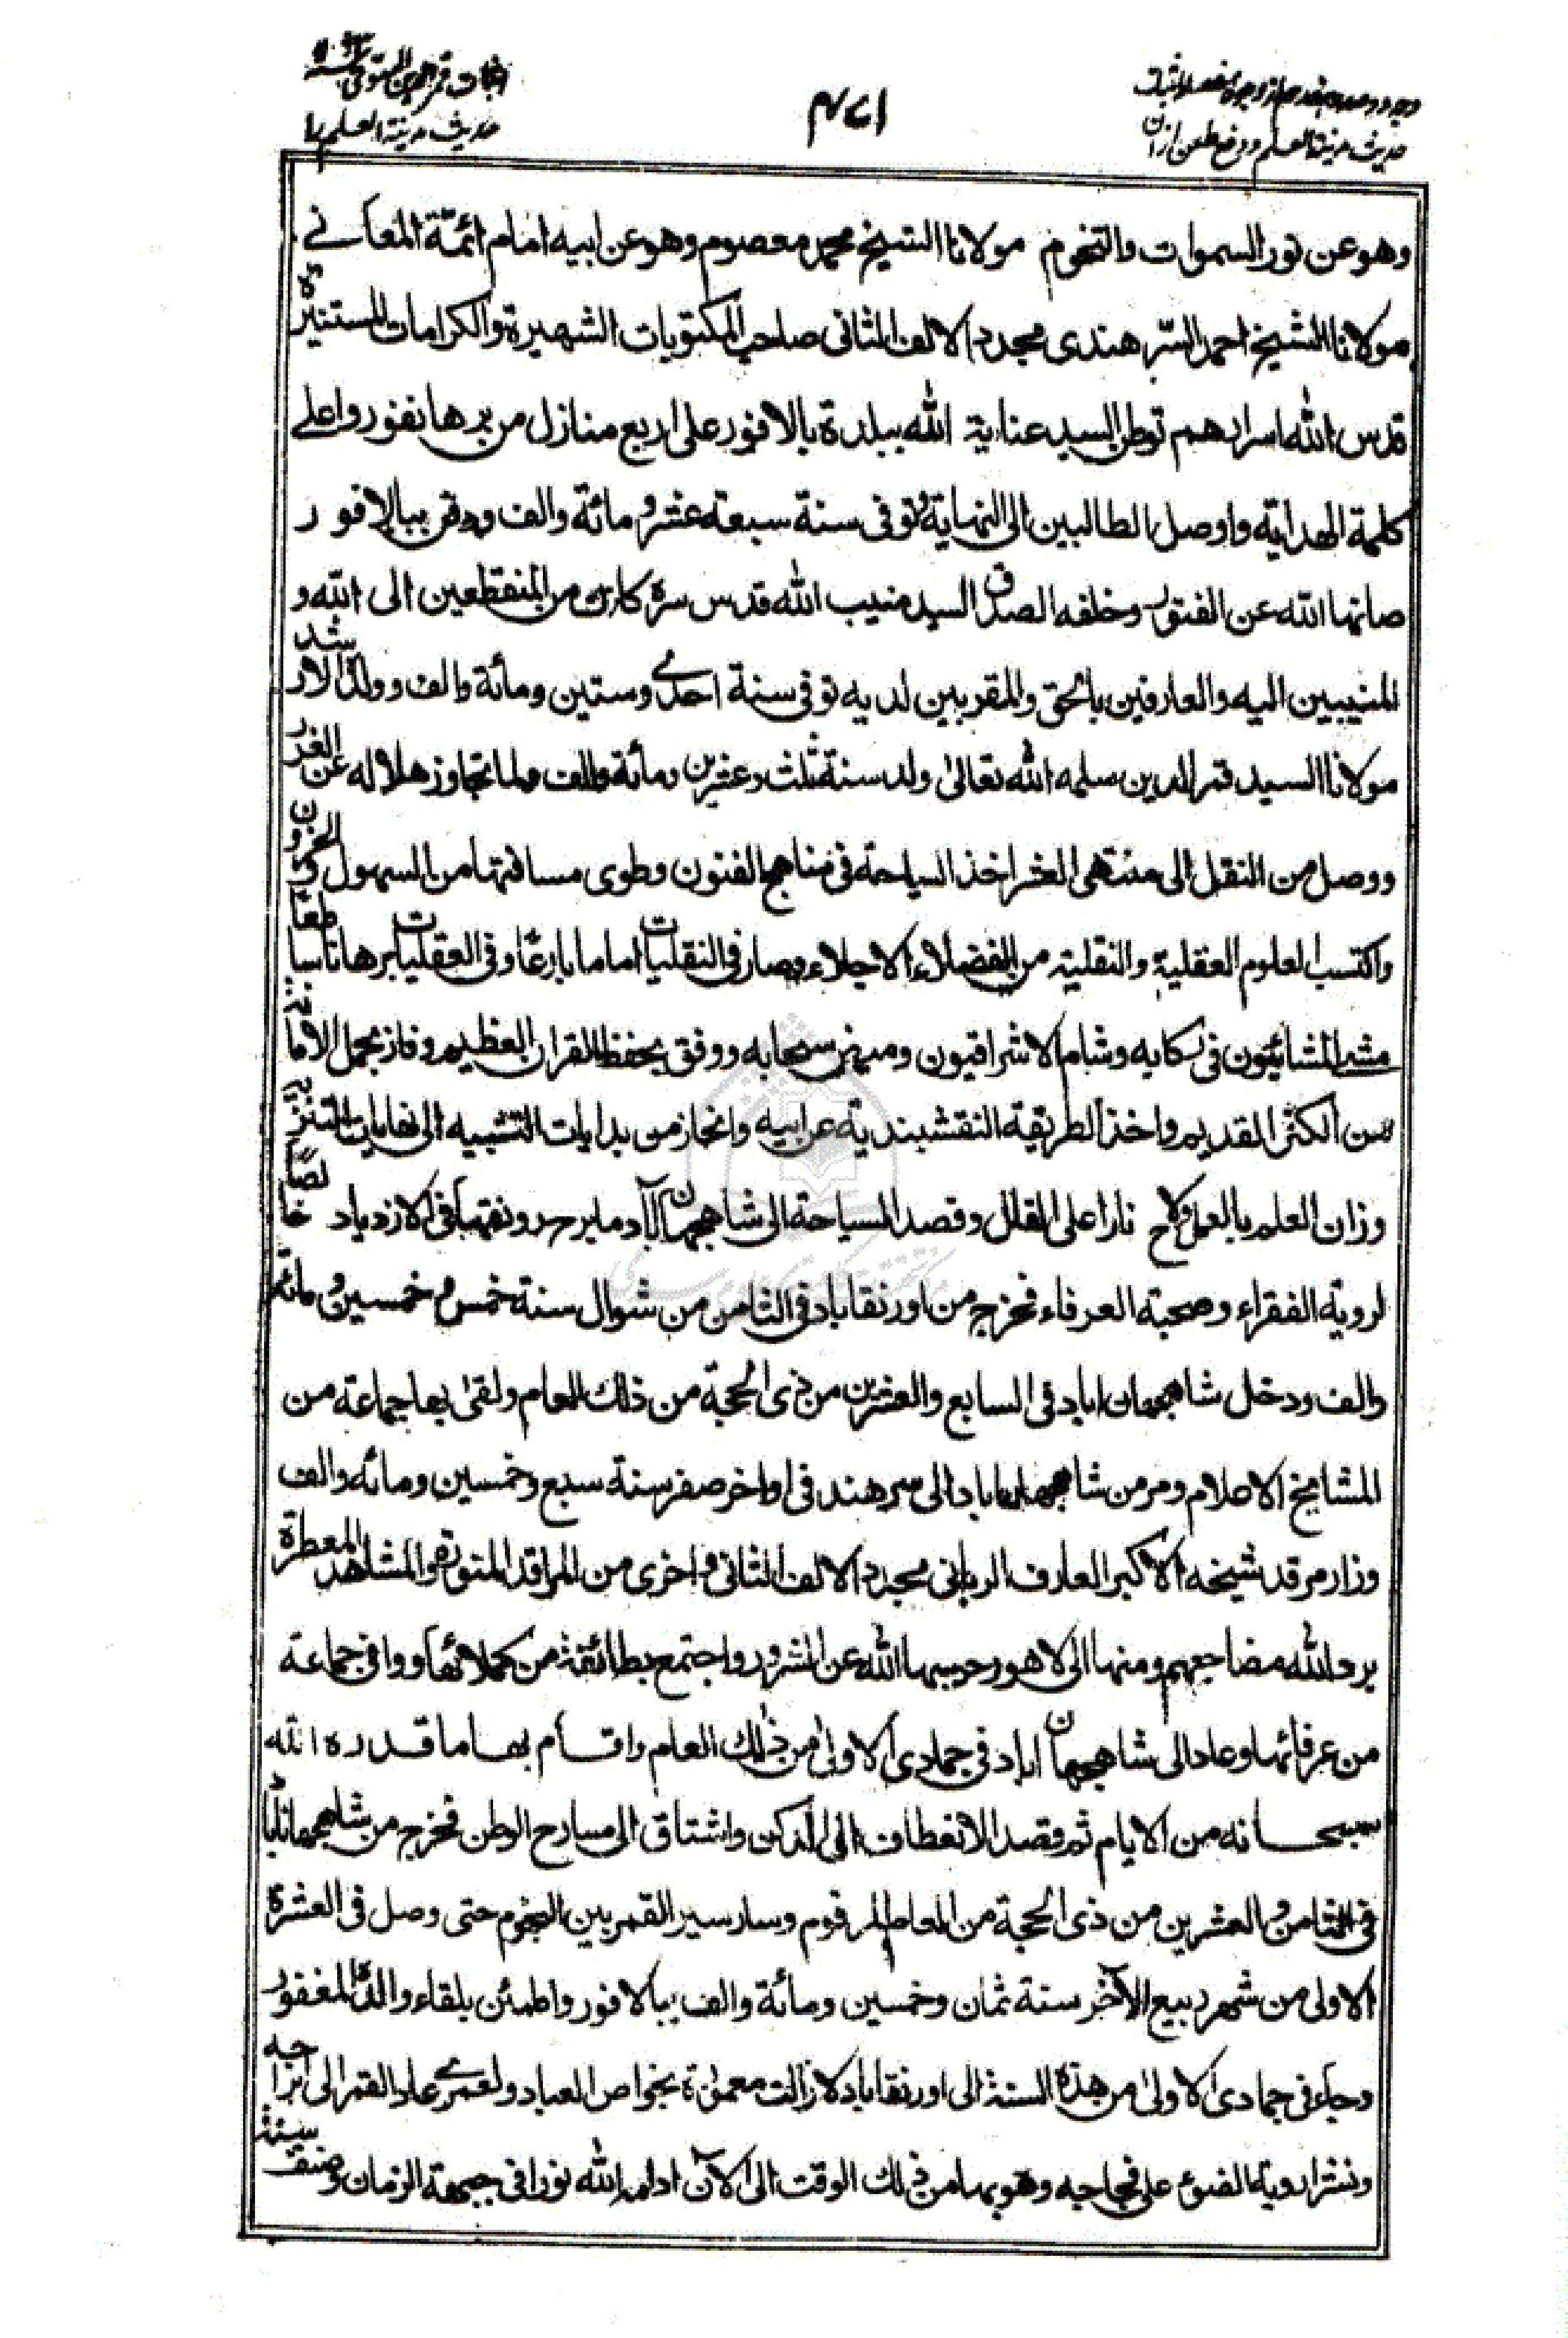 حديث مدينة العلم ودفع طعن ازان
حديث مدينة العلم را
وهو عن نور السموات والتخوم مولانا الشيخ محمد معصوم وهو عن ابيه امام ائمّة المعانے
مولانا الشيخ احمد السّرهندى مجدد الالف الثانى صاحب المكتوبات الشهيرة والكرامات المستنيرة
قدس الله اسرارهم توطن السيد عناية الله ببلدة بالافور على اربع منازل من برهانفور واعلے
كلمة الهداية واوصل الطالبين الى النهاية وتوفى سنة سبعة عشر ومائة والف ودفن ببالافور
صانها الله عن الفتور وخلفه الصدق السيد منيب الله قدس سره كان من المنقطعين الى الله و
المنيبين اليه والعارفين بالحق والمقربين لديه توفى سنة احدى وستين ومائة والف وولده الارشد
مولانا السيد قمر الدين سلمه الله تعالى ولد سنة ثلث وعشرين ومائة والف ولما تجاوز هلاله عن الغرر
ووصل من النقل الى منتهى العشر اخذ السياحة فى مناهج الفنون وطوى مسافتها من السهول والحزون
واكتسب العلوم العقلية والنقلية من الفضلاء الاجلاء وصار فى النقليات اماما بارعًا وفى العقليات برهانا ساطعًا
مشى المشائيون فى ركابه وشام الاشراقيون وميض سحابه ووفق بحفظ القران العظيم وفاز بحمل الامانة
من الكنز القديم واخذ الطريقة النقشبندية عن ابيه وانحاز من بدايات التشبيه الى نهايات التنزيه
وزان العلم بالعمل ولاح نارا على القلل وقصد السياحة الى شاهجهان آباد ما برح رونقها فى الازدياد خالصًا
لروية الفقراء وصحبة العرفاء فخرج من اورنقاباد فى الثامن من شوال سنة خمس وخمسين ومائة
والف ودخل شاهجهان اباد فى السابع والعشرين من ذى الحجة من ذلك العام ولقى بها جماعة من
المشايخ الاعلام ومر من شاهجهان اباد الى سرهند فى اواخر صفر سنة سبع وخمسين ومائة والف
وزار مرقد شيخه الاكبر العارف الربانى مجدد الالف الثانى واخرى من المراقد المنورة والمشاهد المعطرة
برد الله مضاجعهم ومنها الى لاهور حرسها الله عن الشرور واجتمع بطائفة من كملائها ووافى جماعة
من عرفائها وعاد الى شاهجهان اباد فى جمادى الاولى من ذلك العام واقام بها ما قدره الله
سبحانه من الايام ثم قصد الانعطاف الى الدكن واشتاق الى مسارح الوطن فخرج من شاهجهان اباد
فى الثامن والعشرين من ذى الحجة من العام المرقوم وسار سير القمر بين النجوم حتى وصل فى العشرة
الاولى من شهر ربيع الآخر سنة ثمان وخمسين ومائة والف ببالافور واطمئن بلقاء والده المغفور
وجاء فى جمادى الاولى من هذه السنة الى اورنقاباد لا زالت معمورة بخواص العباد ولعمرى عاد القمر الى ابراجه
ونشر اردية الضوء على فجاجه وهو بها من ذلك الوقت الى الآن ادامه الله نورا فى جبهة الزمان وصنف سنة